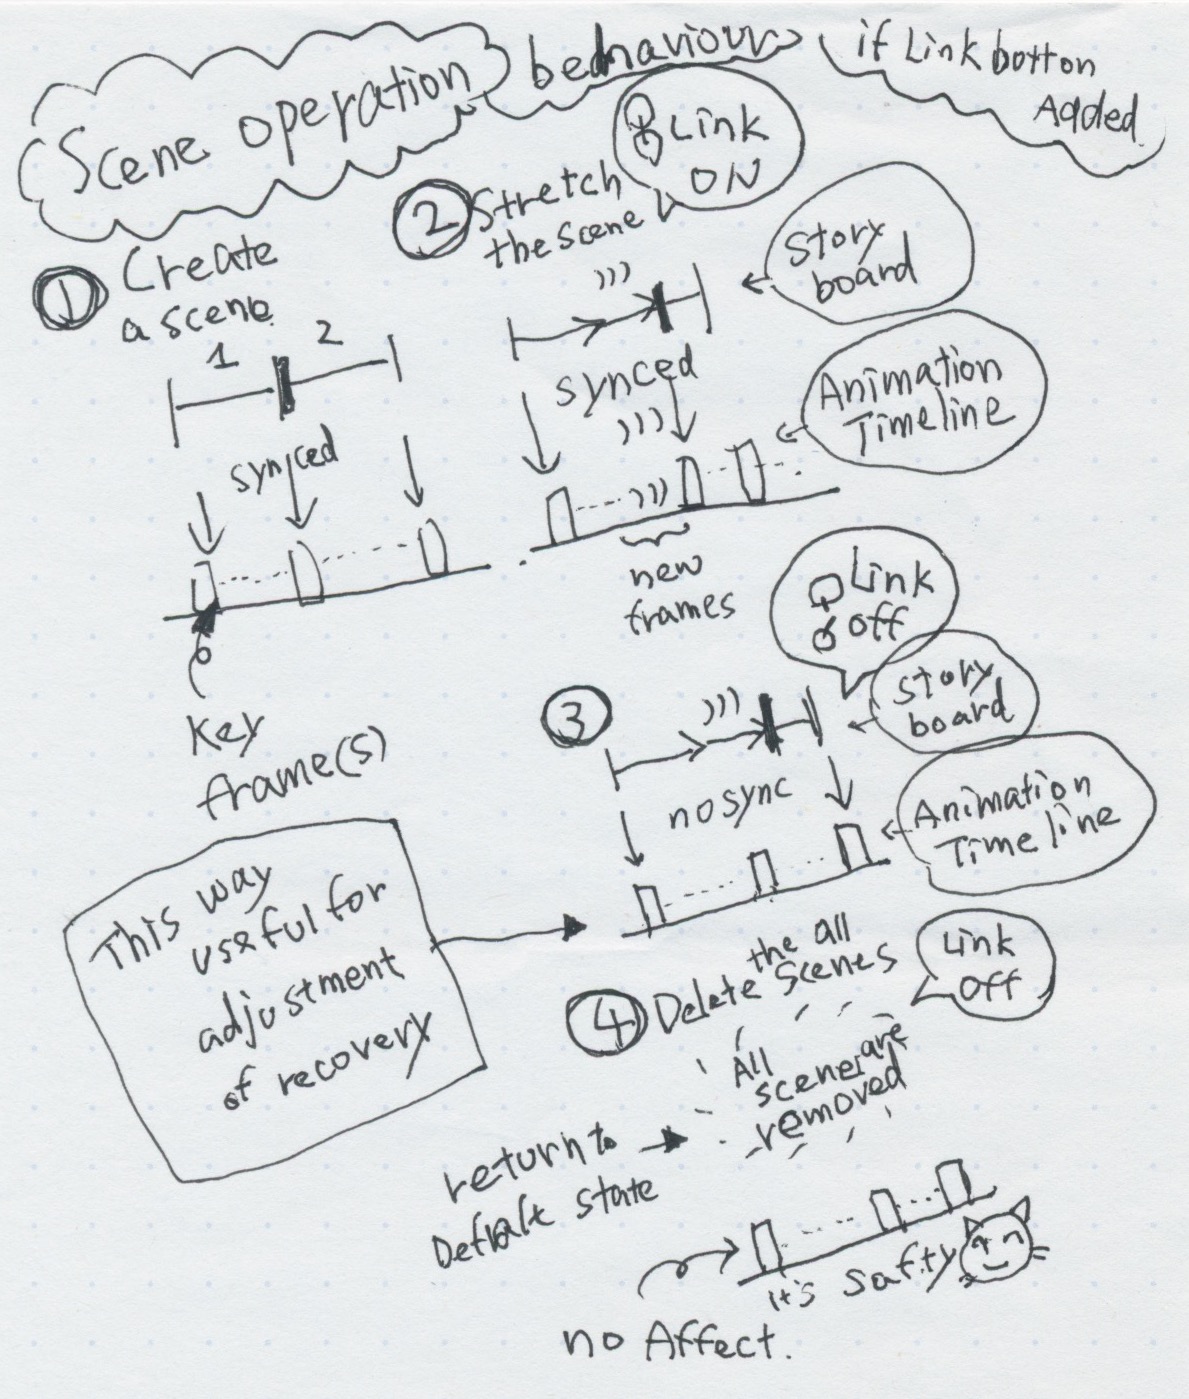 Scene operation
bednaviour
if Link botton
Added
1 Create
a scene
1 2
synced
Key
frame(s)
2 Stretch
the scene
Link
ON
Story
board
synced
Animation
Timeline
new
frames
Link
off
3
Story
board
no sync
Animation
Timeline
This way
useful for
adjustment
of recovery
4 Delete the all
scenes
Link
Off
All
scene are
removed
return to
Defualt state
it's safty
no Affect.